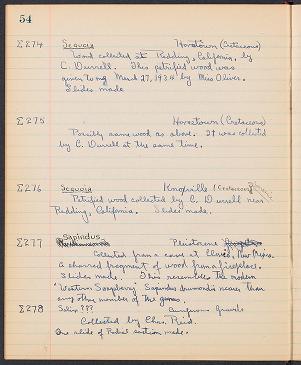 54
Σ274 Sequoia Horsetown (Cretaceous)
Wood collected at Redding, California, by
C. Durrell. This petrified wood was
given to me March 27, 1934 by Miss Oliver.
Slides made
Σ275 Horsetown (Cretaceous)
Possibly same wood as above. It was collected
by C. Durrell at the same time.
Σ276 Sequoia Knoxville (Cretaceous)
Petrified wood collected by C. Durrell near
Redding, California. Slides made.
Sapindus
Σ277 Pleistocene
Collected from a cave at Clovis, New Mexico.
a charred fragment of wood from a fireplace.
Slides made. This resembles the modern
"Western Soapberry" Sapindus drummondii nearer than
any other member of the genus.
Σ278 Salix??? gravels
Collected by Chas. Reid.
One slide of Radial section made.